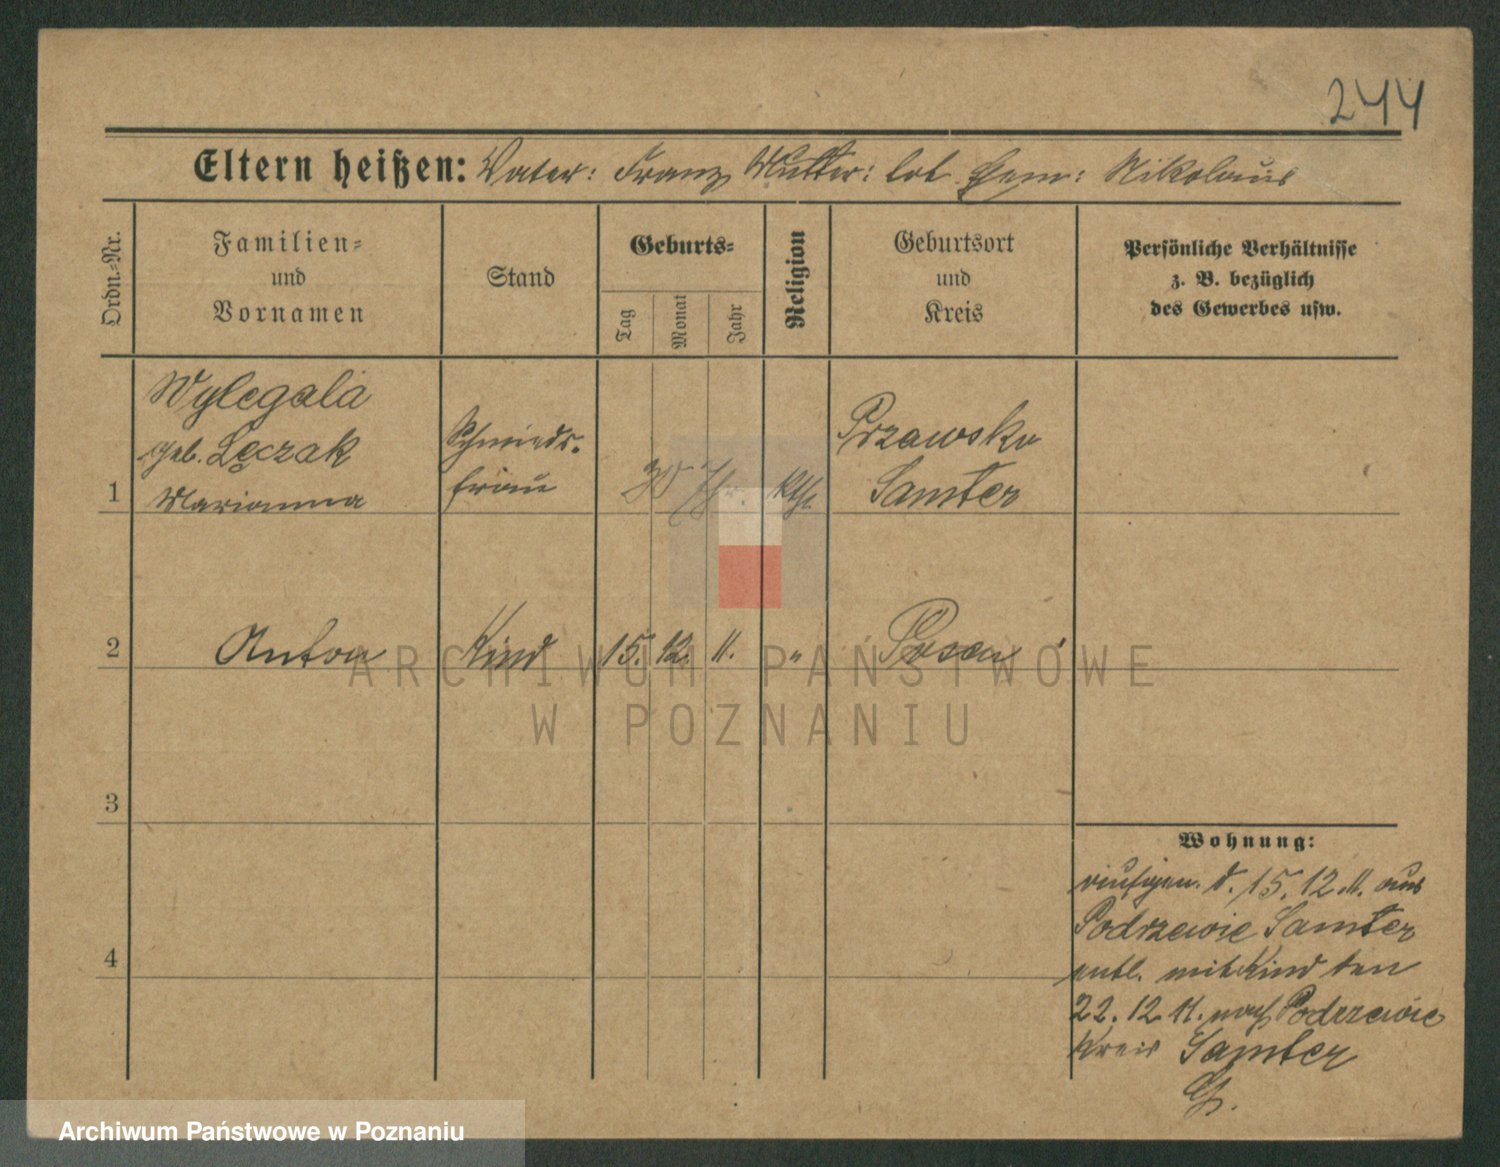 244
Eltern heißen: Vater: Franz Mutter: tot Ehem: Nikolaus
Ordn.-Nr.
Familien-
und
Vornamen
Stand
Geburts-
Tag
Monat
Jahr
Religion
Geburtsort
und
Kreis
Persönliche Verhältnisse
z. B. bezüglich
des Gewerbes usw.
1
Wylegala
geb. Lęczak
Marianna
Schmieds-
frau
30 J.
kth.
Samter
2
Anton
Kind
15. 12. 11.
"
Posen
3
4
Wohnung:
d. 15. 12. 11. aus
Podrzewie Samter
entl. mit Kind den
22. 12. 11. nach Podrzewie
Kreis Samter
ARCHIWUM PAŃSTWOWE
W POZNANIU
Archiwum Państwowe w Poznaniu